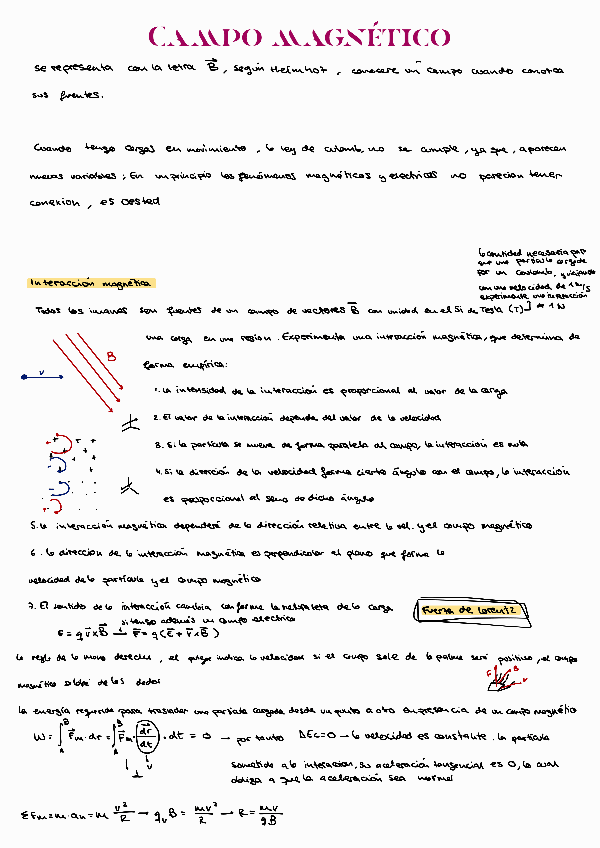 CAMPO MAGNÉTICO
se representa con la letra B⃗, según Helmhot, conocere un campo cuando conozca
sus fuentes.
Cuando tengo cargas en movimiento, la ley de culomb, no se cumple, ya que, aparecen
nuevas variables; En un principio los fenómenos magnéticos y electricos no parecian tener
conexion, es oested
la cantidad necesaria para
que una particula cargada
por un coulomb, y viajando
con una velocidad de 1 m/s
experimente una interacción
Interacción magnética
Todos los imanes son fuentes de un campo de vectores B⃗ con unidad en el Si de Tesla (T) → 1N
una carga en una region. Experimenta una interacción magnética, que determina de
forma empírica:
B
v
1. La intensidad de la interacción es proporcional al valor de la carga
2. El valor de la interacción depende del valor de la velocidad
3. Si la partícula se mueve de forma paralela al campo, la interacción es nula
4. Si la dirección de la velocidad forma cierto ángulo con el campo, la interacción
es proporcional al seno de dicho ángulo
5. La interacción magnética dependerá de la dirección relativa entre la vel. y el campo magnético
6. la direccion de la interacción magnética es perpendicular al plano que forma la
velocidad de la partícula y el campo magnético
7. El sentido de la interacción cambia conforme la naturaleza de la carga
Fuerza de Lorentz
si tengo además un campo electrico
F = q v⃗ x B⃗ → F⃗ = q (E⃗ + v⃗ x B⃗)
la regla de la mano derecha, el pulgar indica la velocidad si el campo sale de la palma será positivo, el campo
magnético sale de los dedos
F B v
la energía requerida para trasladar una partícula cargada desde un punto a otro en presencia de un campo magnético
W = ∫_A^B F⃗m · dr = ∫_A^B F⃗m · dr⃗/dt · dt = 0 → por tanto ΔEc=0 → la velocidad es constante. la partícula
v
sometida a la interaccion, su aceleración tangencial es 0, lo cual
obliga a que la aceleración sea normal
ΣFm = m · an = m v²/R → qvB = mv²/R → R = mv/qB